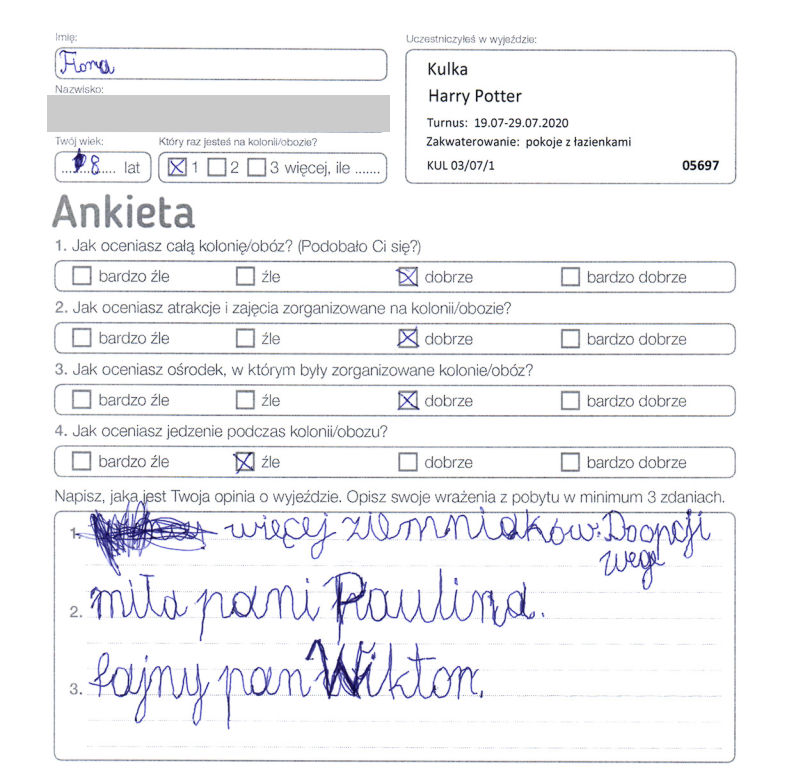 Imię:
Fiona
Nazwisko:
Twój wiek:
8 lat
Który raz jesteś na kolonii/obozie?
1 2 3 więcej, ile .......
Uczestniczyłeś w wyjeździe:
Kulka
Harry Potter
Turnus: 19.07-29.07.2020
Zakwaterowanie: pokoje z łazienkami
KUL 03/07/1 05697
Ankieta
1. Jak oceniasz całą kolonię/obóz? (Podobało Ci się?)
bardzo źle źle dobrze bardzo dobrze
2. Jak oceniasz atrakcje i zajęcia zorganizowane na kolonii/obozie?
bardzo źle źle dobrze bardzo dobrze
3. Jak oceniasz ośrodek, w którym były zorganizowane kolonie/obóz?
bardzo źle źle dobrze bardzo dobrze
4. Jak oceniasz jedzenie podczas kolonii/obozu?
bardzo źle źle dobrze bardzo dobrze
Napisz, jaka jest Twoja opinia o wyjeździe. Opisz swoje wrażenia z pobytu w minimum 3 zdaniach.
1. więcej ziemniaków. Do opcji
wege
2. miła pani Paulina.
3. fajny pan Wiktor.